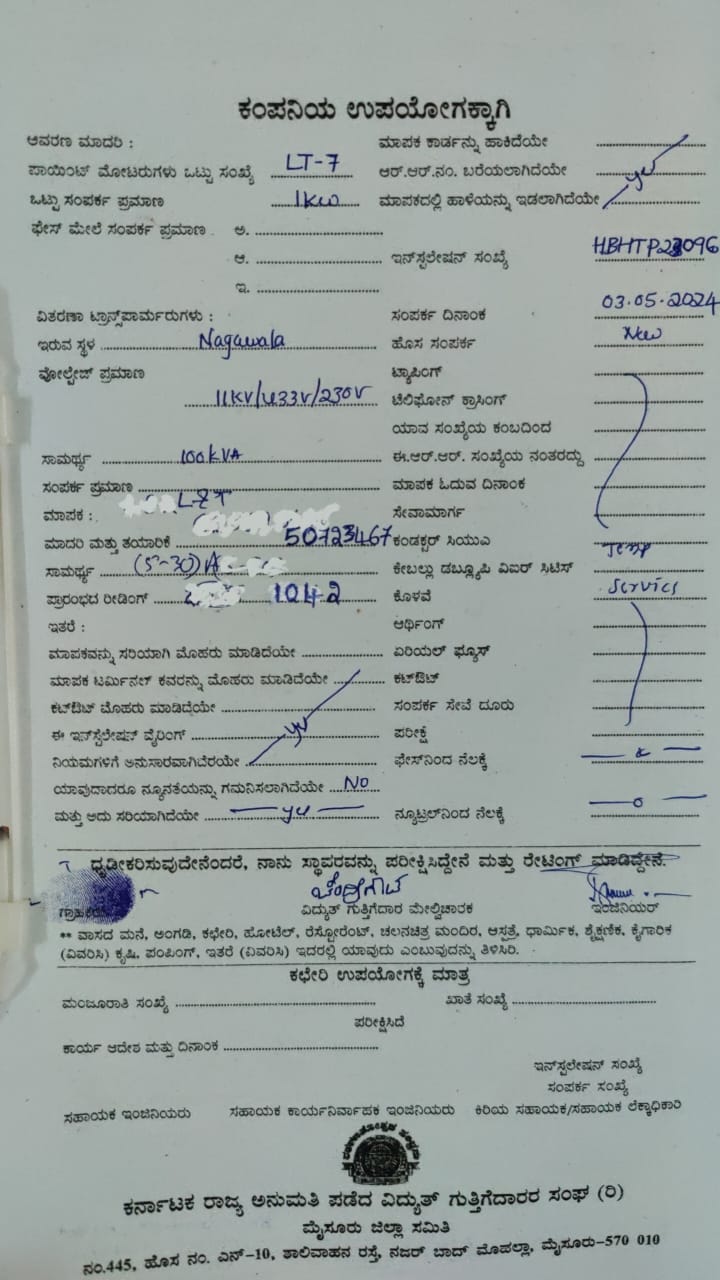 ಕಂಪನಿಯ ಉಪಯೋಗಕ್ಕಾಗಿ
ಆವರಣ ಮಾದರಿ : ಮಾಪಕ ಕಾರ್ಡನ್ನು ಹಾಕಿದೆಯೇ
ಪಾಯಿಂಟ್ ಮೋಟರುಗಳು ಒಟ್ಟು ಸಂಖ್ಯೆ LT-7 ಆರ್.ಆರ್.ನಂ. ಬರೆಯಲಾಗಿದೆಯೇ yes
ಒಟ್ಟು ಸಂಪರ್ಕ ಪ್ರಮಾಣ 1kw ಮಾಪಕದಲ್ಲಿ ಹಾಳೆಯನ್ನು ಇಡಲಾಗಿದೆಯೇ
ಫೇಸ್ ಮೇಲೆ ಸಂಪರ್ಕ ಪ್ರಮಾಣ ಅ.
ಆ. ಇನ್‌ಸ್ಟಲೇಷನ್ ಸಂಖ್ಯೆ
ಇ.
ವಿತರಣಾ ಟ್ರಾನ್ಸ್‌ಫಾರ್ಮರುಗಳು : ಸಂಪರ್ಕ ದಿನಾಂಕ 03.05.2024
ಇರುವ ಸ್ಥಳ Nagawala ಹೊಸ ಸಂಪರ್ಕ New
ವೋಲ್ಟೇಜ್ ಪ್ರಮಾಣ 11KV/433V/230V ಟ್ಯಾಪಿಂಗ್
ಟೆಲಿಫೋನ್ ಕ್ರಾಸಿಂಗ್
ಯಾವ ಸಂಖ್ಯೆಯ ಕಂಬದಿಂದ
ಸಾಮರ್ಥ್ಯ 100kVA ಈ.ಆರ್.ಆರ್. ಸಂಖ್ಯೆಯ ನಂತರದ್ದು
ಸಂಪರ್ಕ ಪ್ರಮಾಣ ಮಾಪಕ ಓದುವ ದಿನಾಂಕ
ಮಾಪಕ : L&T ಸೇವಾಮಾರ್ಗ
ಮಾದರಿ ಮತ್ತು ತಯಾರಿಕೆ 50723467 ಕಂಡಕ್ಟರ್ ಸಿಯುಎ Temp
ಸಾಮರ್ಥ್ಯ (5-30)A ಕೇಬಲ್ಲು ಡಬ್ಲ್ಯೂಪಿ ವಿಐರ್ ಸಿಟಿಸ್
ಪ್ರಾರಂಭದ ರೀಡಿಂಗ್ 104-2 ಕೊಳವೆ Service
ಇತರೆ : ಆರ್ಥಿಂಗ್
ಮಾಪಕವನ್ನು ಸರಿಯಾಗಿ ಮೊಹರು ಮಾಡಿದೆಯೇ ಏರಿಯಲ್ ಫ್ಯೂಸ್
ಮಾಪಕ ಟರ್ಮಿನಲ್ ಕವರನ್ನು ಮೊಹರು ಮಾಡಿದೆಯೇ ಕಟ್‌ಔಟ್
ಕಟ್‌ಔಟ್ ಮೊಹರು ಮಾಡಿದೆಯೇ ಸಂಪರ್ಕ ಸೇವೆ ದೂರು
ಈ ಇನ್‌ಸ್ಟಲೇಷನ್ ವೈರಿಂಗ್ yes ಪರೀಕ್ಷೆ
ನಿಯಮಗಳಿಗೆ ಅನುಸಾರವಾಗಿವೆರಯೇ ಫೇಸ್‌ನಿಂದ ನೆಲಕ್ಕೆ
ಯಾವುದಾದರೂ ನ್ಯೂನತೆಯನ್ನು ಗಮನಿಸಲಾಗಿದೆಯೇ NO
ಮತ್ತು ಅದು ಸರಿಯಾಗಿದೆಯೇ yes ನ್ಯೂಟ್ರಲ್‌ನಿಂದ ನೆಲಕ್ಕೆ
ಧೃಡೀಕರಿಸುವುದೇನೆಂದರೆ, ನಾನು ಸ್ಥಾಪರವನ್ನು ಪರೀಕ್ಷಿಸಿದ್ದೇನೆ ಮತ್ತು ರೇಟಿಂಗ್ ಮಾಡಿದ್ದೇನೆ.
ವಿದ್ಯುತ್ ಗುತ್ತಿಗೆದಾರ ಮೇಲ್ವಿಚಾರಕ ಇಂಜಿನಿಯರ್
** ವಾಸದ ಮನೆ, ಅಂಗಡಿ, ಕಛೇರಿ, ಹೋಟೆಲ್, ರೆಸ್ಟೋರೆಂಟ್, ಚಲನಚಿತ್ರ ಮಂದಿರ, ಆಸ್ಪತ್ರೆ, ಧಾರ್ಮಿಕ, ಶೈಕ್ಷಣಿಕ, ಕೈಗಾರಿಕ
(ವಿವರಿಸಿ) ಕೃಷಿ, ಪಂಪಿಂಗ್, ಇತರೆ (ವಿವರಿಸಿ) ಇದರಲ್ಲಿ ಯಾವುದು ಎಂಬುವುದನ್ನು ತಿಳಿಸಿರಿ.
ಕಛೇರಿ ಉಪಯೋಗಕ್ಕೆ ಮಾತ್ರ
ಮಂಜೂರಾತಿ ಸಂಖ್ಯೆ ಖಾತೆ ಸಂಖ್ಯೆ
ಪರೀಕ್ಷಿಸಿದೆ
ಕಾರ್ಯ ಆದೇಶ ಮತ್ತು ದಿನಾಂಕ
ಇನ್‌ಸ್ಟಲೇಷನ್ ಸಂಖ್ಯೆ
ಸಂಪರ್ಕ ಸಂಖ್ಯೆ
ಸಹಾಯಕ ಇಂಜಿನಿಯರು ಸಹಾಯಕ ಕಾರ್ಯನಿರ್ವಾಪಕ ಇಂಜಿನಿಯರು ಕಿರಿಯ ಸಹಾಯಕ/ಸಹಾಯಕ ಲೆಕ್ಕಾಧಿಕಾರಿ
ಕರ್ನಾಟಕ ರಾಜ್ಯ ಅನುಮತಿ ಪಡೆದ ವಿದ್ಯುತ್ ಗುತ್ತಿಗೆದಾರರ ಸಂಘ (ರಿ)
ಮೈಸೂರು ಜಿಲ್ಲಾ ಸಮಿತಿ
ನಂ.445, ಹೊಸ ನಂ. ಎನ್-10, ಶಾಲಿವಾಹನ ರಸ್ತೆ, ನಜರ್ ಬಾದ್ ಮೊಪಲ್ಲಾ, ಮೈಸೂರು-570 010